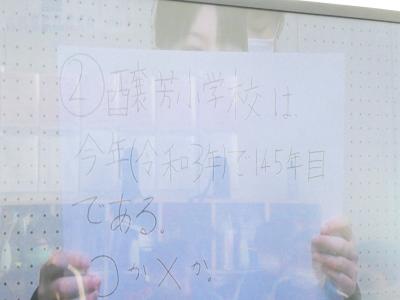 ②醸芳小学校は、
今年(令和3年)で145年目
である。
○か×か。